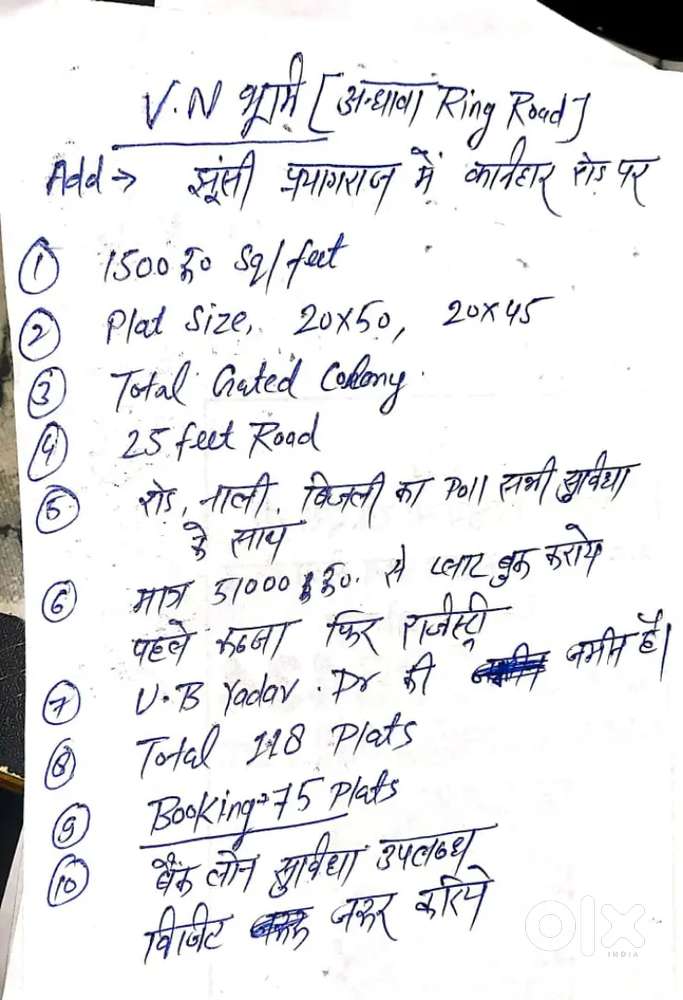 V.N भूमि [अन्धावा Ring Road]
Add → झूंसी प्रयागराज में कनिहार रोड पर
① 1500 रु० Sq/feet
② Plat Size, 20x50, 20x45
③ Total Gated Colony.
④ 25 feet Road
⑤ रोड, नाली, बिजली का Poll सभी सुविधा
के साथ
⑥ मात्र 51000 रु०. से प्लाट बुक कराये
पहले कब्जा फिर रजिस्ट्री
⑦ V.B Yadav. Dr की जमीन है।
⑧ Total 118 Plats
⑨ Booking = 75 Plats
⑩ बैंक लोन सुविधा उपलब्ध
विजिट जरूर करिये
olx
INDIA